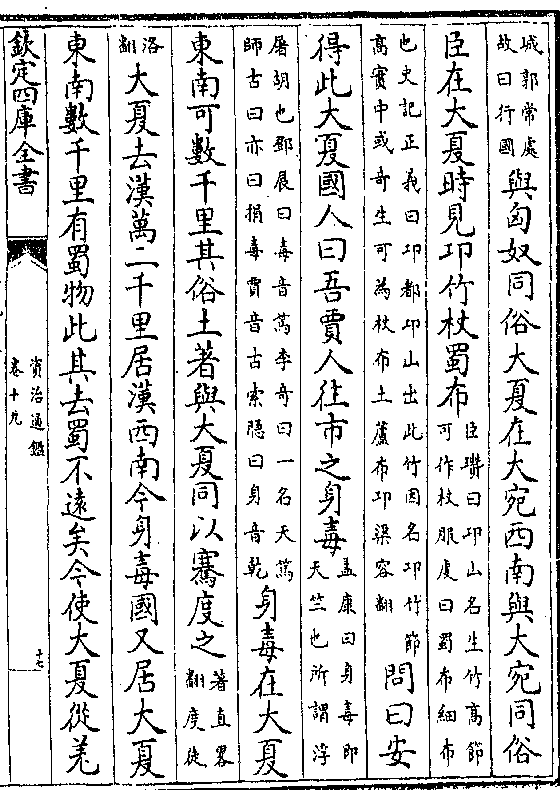 城郭常處故曰行國與匈奴同俗大夏在大宛西南與大宛同俗
臣在大夏時見卭竹杖蜀布臣瓚曰卭山名生竹高節可作杖服虔曰蜀布細布
也史記正義曰卭都卭山出此竹因名卭竹節高實中或奇生可為杖布土蘆布卭渠容翻問曰安
得此大夏國人曰吾賈人往市之身毒孟康曰身毒即天竺也所謂浮
屠胡也鄧展曰毒音篤李奇曰一名天篤師古曰亦曰捐毒賈音古索隠曰身音乾身毒在大夏
東南可數千里其俗土著與大夏同以騫度之著直畧翻度徒
洛翻大夏去漢萬二千里居漢西南今身毒國又居大夏
東南數千里有蜀物此其去蜀不遠矣今使大夏從羌
欽定四庫全書
資治通鑑
卷十九
十七